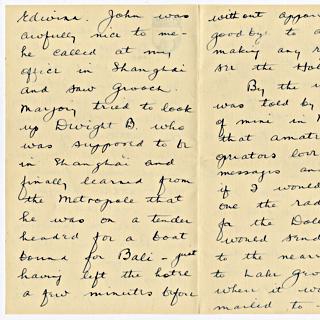 Edwina. John was
awfully nice to me-
he called at my
office in Shanghai
and saw
Marjory tried to look
up Dwight B. who
was supposed to be
in Shanghai and
finally learned from
the Metropole that
he was on a tender
headed for a boat
bound for Bali - just
having left the hotel
a few minutes before
without
good by to
making any
see the
By the
was told by
of mine in
that amate
operators
messages an
if I would
one the rad
for the Dol
would send
to the near
to Lake
when it wo
mailed to -